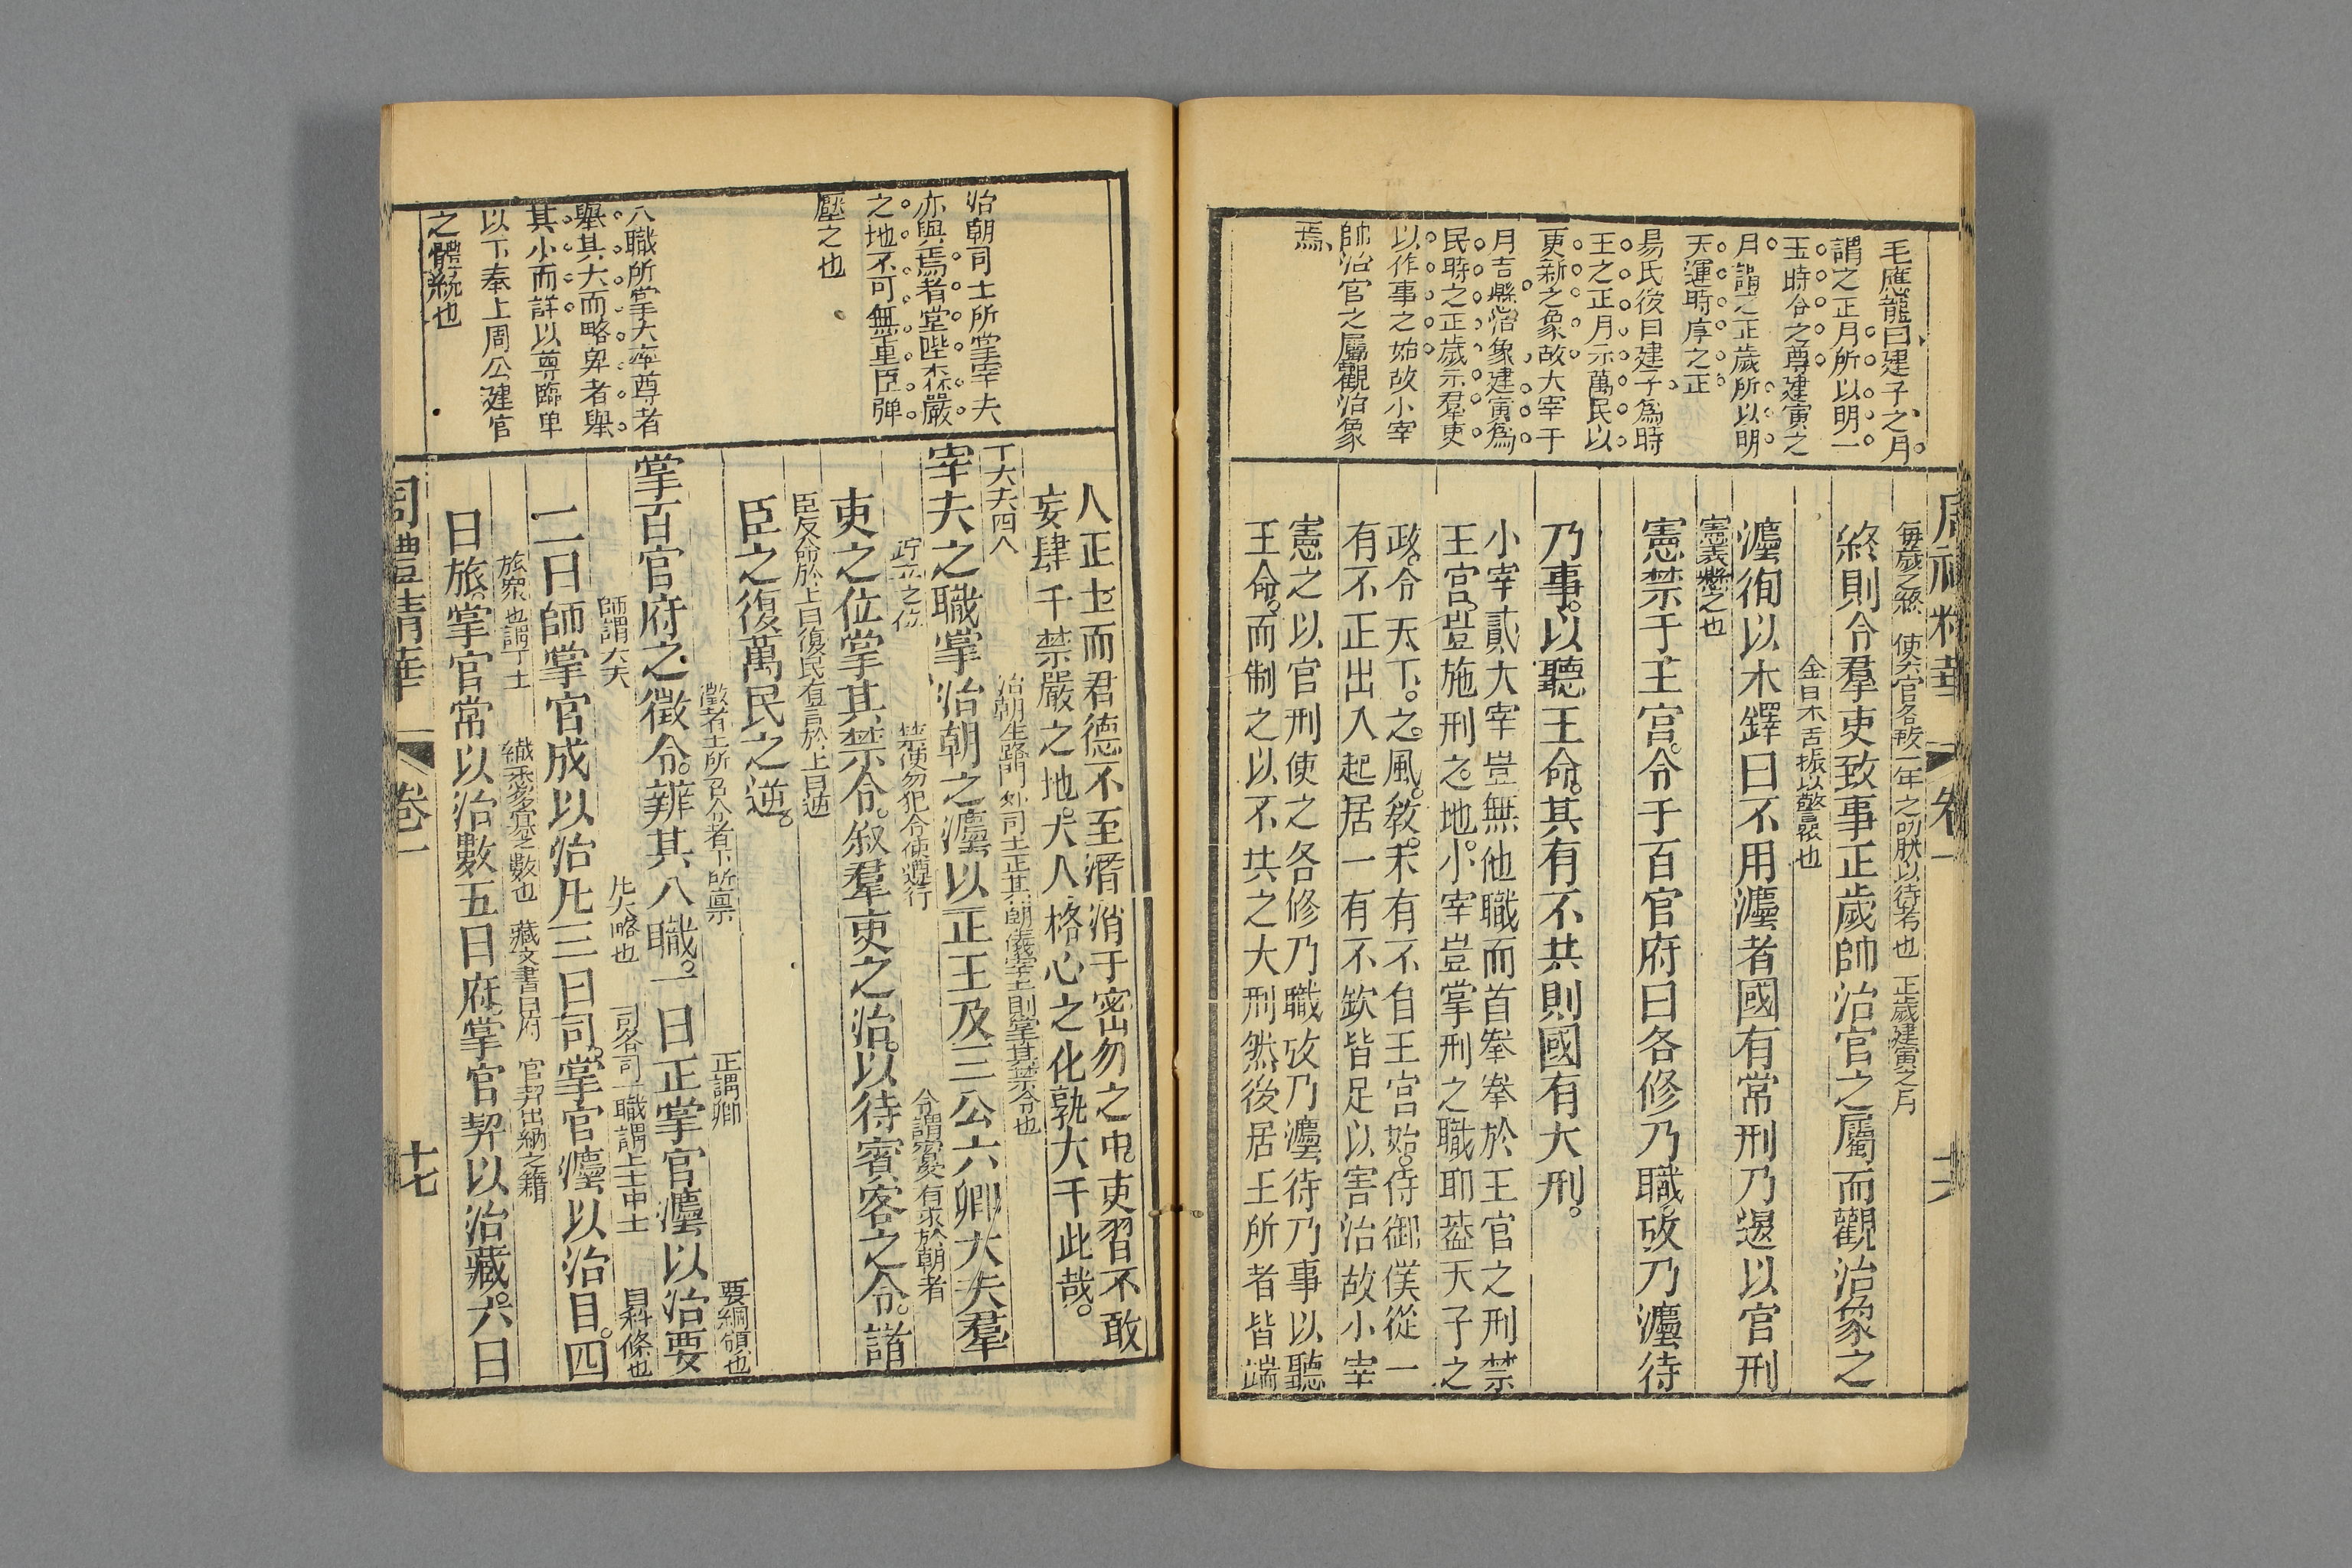 毛應龍曰建子之月
謂之正月所以明一
王時令之尊建寅之
月謂之正歲所以明
天運時序之正
易氏後曰建子為時
王之正月示萬民以
更新之象故大宰于
月吉縣治象建寅為
民時之正歲示羣吏
以作事之始故小宰
帥治官之屬觀治象
焉
卷一
每歲之終 使六官各致一年之功狀以待考也 正歲建寅之月
終則令羣吏致事正歲帥治官之屬而觀治象之
金口木舌振以警眾也
灋徇以木鐸曰不用灋者國有常刑乃退以官刑
憲表懸之也
憲禁于王宮令于百官府曰各修乃職攷乃灋待
乃事以聽王命其有不共則國有大刑
小宰貳大宰豈無他職而首舉舉於王官之刑禁
王宮豈施刑之地小宰豈掌刑之職耶葢天子之
政令天下之風教未有不自王宮始侍御僕從一
有不正出入起居一有不欽皆足以害治故小宰
憲之以官刑使之各修乃職攷乃灋待乃事以聽
王命而制之以不共之大刑然後居王所者皆端
治朝司士所掌宰夫
亦與焉者堂陛森嚴
之地不可無重臣弹
壓之也
八職所掌大率尊者
舉其大而略卑者舉
其小而詳以尊臨卑
以下奉上周公建官
之體統也
人正士而君德不至潛消于密勿之中吏習不敢
妄肆于禁嚴之地大人格心之化孰大于此哉
下大夫四人 治朝在路門外司士正其朝儀宰夫則掌其禁令也
宰夫之職掌治朝之灋以正王及三公六卿大夫羣
佇立之位 禁使勿犯令使遵行 令謂賓客有求於朝者
吏之位掌其禁令叙羣吏之治以待賓客之令諸
臣反命於上曰復民有言於上曰逆
臣之復萬民之逆
徵者上所召令者下所禀 正謂卿 要綱領也
掌百官府之徵令辨其八職一曰正掌官灋以治要
師謂大夫 凡大略也 司各司一職謂上士中士 目科條也
二曰師掌官成以治凡三曰司掌官灋以治目四
旅眾也謂下士 纖悉多寡之數也 藏文書曰府 官契出納之籍
曰旅掌官常以治數五曰府掌官契以治藏六曰
周禮精華 卷一 十七